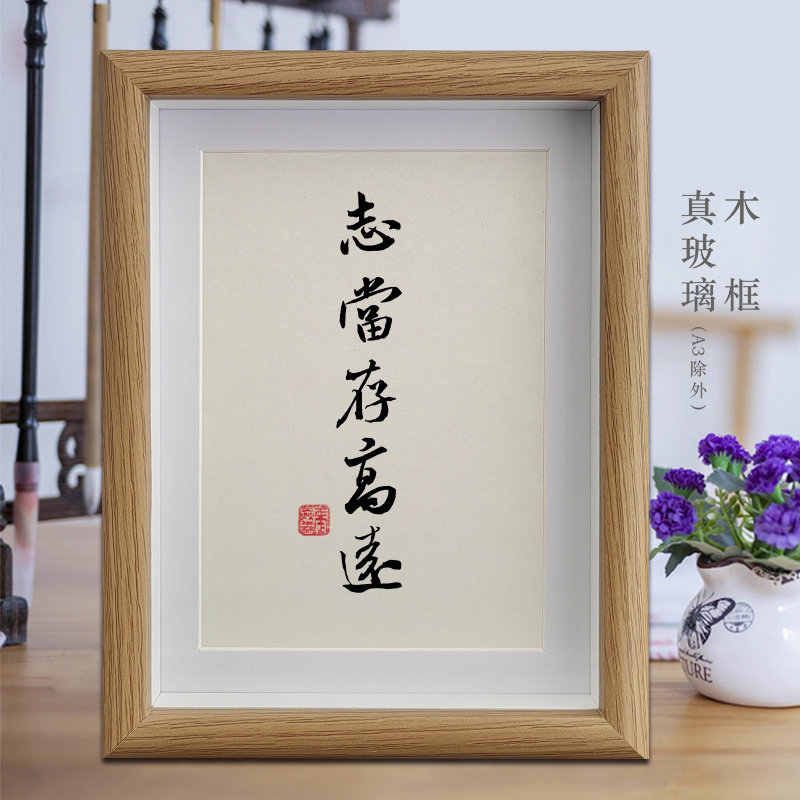 志當存高遠
木框
真玻璃(A3除外)
TURE